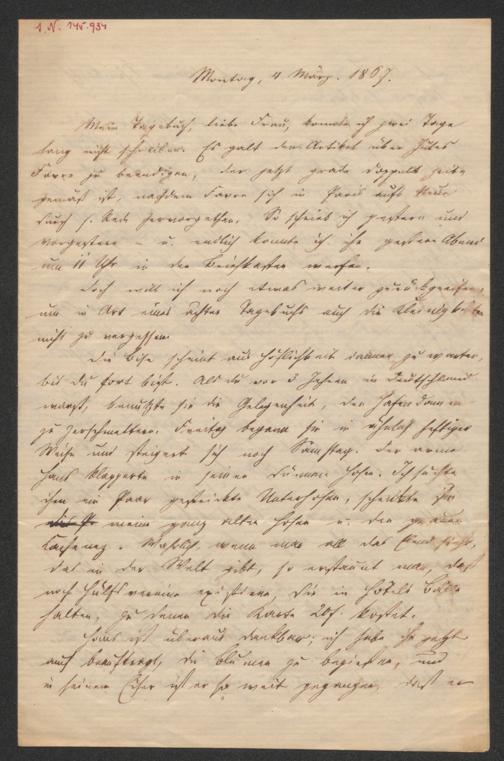 I.N. 145.934
Montag, 4 März. 1867.
Mein Tagebuch, liebe Frau, konnte ich zwei Tage
lang nicht schreiben. Es galt den Artikel über Jules
Favre zu beendigen, der jetzt grade doppelt zeit-
gemäß ist, nachdem Favre sich in Paris aufs Neue
durch s. Rede hervorgethan. So schrieb ich gestern und
vorgestern – u. endlich konnte ich ihn gestern Abend
um 11 Uhr in den Briefkasten werfen.
Doch will ich noch etwas weiter zurückgreifen,
um in Art eines ächten Tagebuchs auch die Kleinigkeiten
nicht zu vergessen.
Die Bise scheint aus Höflichkeit immer zu warten,
bis du fort bist. Als du vor 3 Jahren in Deutschland
warst, benutzte sie die Gelegenheit, den Hafendamm
zu zerschmettern. Freitag begann sie in ähnlich heftiger
Weise und steigert sich noch Samstag. Der arme
Hans klapperte in seiner dünnen Hose. Ich suchte
ihm ein Paar gestrickte Unterhosen, schenkte ihm
meine ganz alten Hosen u. den grauen
Cachenez. Wahrlich, wenn man all das Elend sieht,
das in der Welt gibt, so erstaunt man, daß
noch Hülfsvereine existiren, die in Hôtels Bälle
halten, zu denen die Karte 20f. kostet.
Hans ist überaus dankbar; ich habe ihn jetzt
auch beauftragt, die Blumen zu begießen, und
in seinem Eifer ist er so weit gegangen, daß er